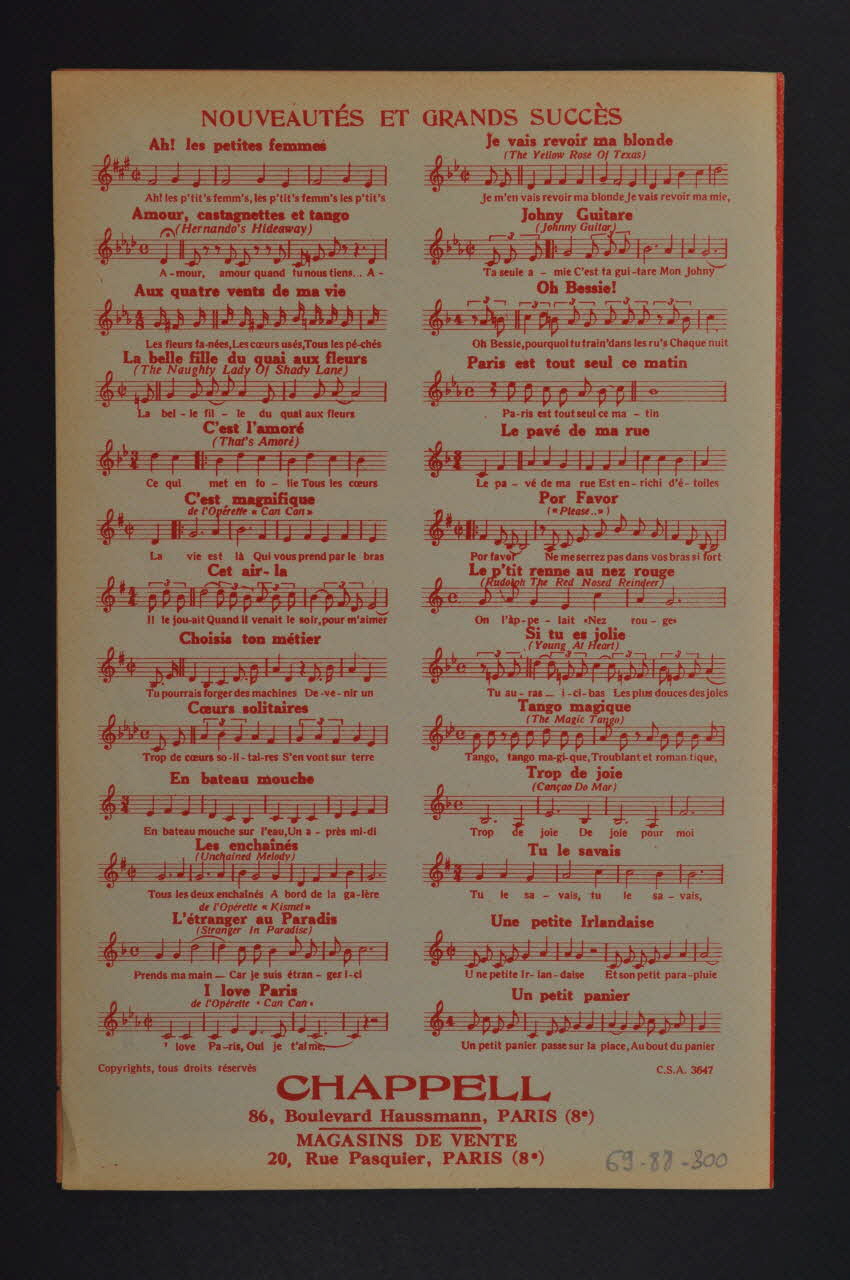 NOUVEAUTÉS ET GRANDS SUCCÈS
Ah! les petites femmes
Ah! les p'tit's femm's, les p'tit's femm's les p'tit's
Amour, castagnettes et tango
(Hernando's Hideaway)
A-mour, amour quand tu nous tiens... A-
Aux quatre vents de ma vie
Les fleurs fa-nées, Les cœurs usés, Tous les pé-chés
La belle fille du quai aux fleurs
(The Naughty Lady Of Shady Lane)
La bel-le fil-le du quai aux fleurs
C'est l'amoré
(That's Amoré)
Ce qui met en fo-lie Tous les cœurs
C'est magnifique
de l'Opérette « Can Can »
La vie est là Qui vous prend par le bras
Cet air-la
Il le jou-ait Quand il venait le soir, pour m'aimer
Choisis ton métier
Tu pourrais forger des machines De-ve-nir un
Cœurs solitaires
Trop de cœurs so-li-tai-res S'en vont sur terre
En bateau mouche
En bateau mouche sur l'eau, Un a-près mi-di
Les enchaînés
(Unchained Melody)
Tous les deux enchaînés A bord de la ga-lère
de l'Opérette « Kismet »
L'étranger au Paradis
(Stranger In Paradise)
Prends ma main — Car je suis étran-ger i-ci
I love Paris
de l'Opérette « Can Can »
' love Pa-ris, Oui je t'aime,
Je vais revoir ma blonde
(The Yellow Rose Of Texas)
Je m'en vais revoir ma blonde Je vais revoir ma mie,
Johny Guitare
(Johnny Guitar)
Ta seule a-mie C'est ta gui-tare Mon Johny
Oh Bessie!
Oh Bessie, pourquoi tu train' dans les ru's Chaque nuit
Paris est tout seul ce matin
Pa-ris est tout seul ce ma-tin
Le pavé de ma rue
Le pa-vé de ma rue Est en-richi d'é-toiles
Por Favor
(« Please..» )
Por favor Ne me serrez pas dans vos bras si fort
Le p'tit renne au nez rouge
(Rudolph The Red Nosed Reindeer)
On l'ap-pe-lait «Nez rou-ge»
Si tu es jolie
(Young At Heart)
Tu au-ras — i-ci-bas Les plus douces des joies
Tango magique
(The Magic Tango)
Tango, tango ma-gi-que, Troublant et roman tique,
Trop de joie
(Cançao Do Mar)
Trop de joie De joie pour moi
Tu le savais
Tu le sa-vais, tu le sa-vais,
Une petite Irlandaise
Une petite Ir-lan-daise Et son petit para-pluie
Un petit panier
Un petit panier passe sur la place, Au bout du panier
Copyrights, tous droits réservés
C.S.A. 3647
CHAPPELL
86, Boulevard Haussmann, PARIS (8e)
MAGASINS DE VENTE
20, Rue Pasquier, PARIS (8e)
69-88-300